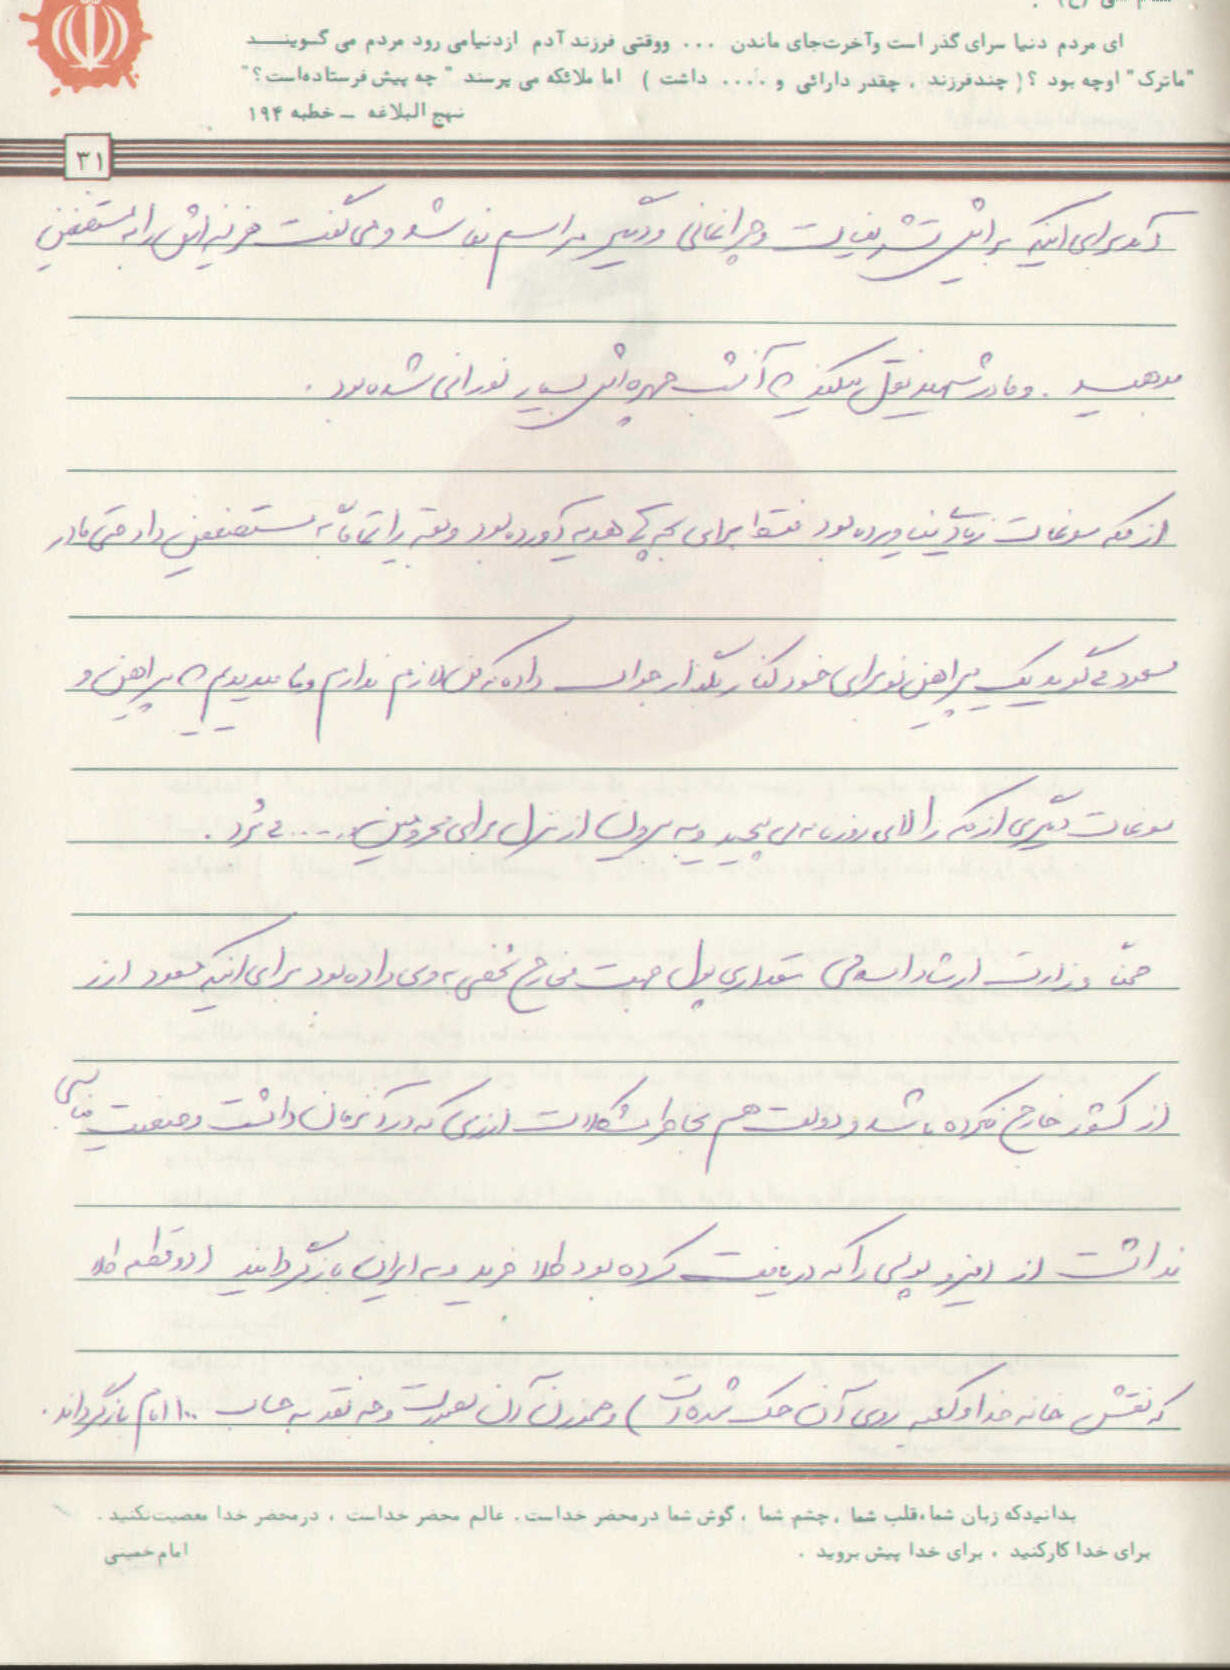 ای مردم دنیا سرای گذر است وآخرت‌جای ماندن ... ووقتی فرزند آدم ازدنیامی رود مردم می گویند
"ماترک" اوچه بود ؟ ( چندفرزند ، چقدر دارائی و .... داشت ) اما ملائکه می پرسند "چه پیش فرستاده‌است؟"
نهج البلاغه ــ خطبه ۱۹۴
۳۱
آمد برای اینکه برایش تشریفات و چراغانی و دیگر مراسم نباشد و می گفت هزینه اش را به مستضعفین
بدهید . و مادر شهید نقل میکند که آنشب چهره اش بسیار نورانی شده بود .
از مکه سوغات زیادی نیاورده بود فقط برای بچه ها هدیه آورده بود و بقیه را تماماً به مستضعفین داد حتی مادر
مسعود می گوید یک پیراهن نو برای خود کنار بگذار جواب داده که من لازم ندارم و ما میدیدیم که پیراهن و
سوغات دیگری از مکه را لای روزنامه می پیچید و به بیرون از منزل برای محرومین .... می برد .
ضمناً وزارت ارشاد اسلامی مقداری پول جهت مخارج شخصی به وی داده بود برای اینکه مسعود ارز
از کشور خارج نکرده باشد و دولت هم بخاطر مشکلات ارزی که در آنزمان داشت وضعیت مناسبی
نداشت از اینرو پولی را که دریافت کرده بود طلا خرید و به ایران بازگردانید (دو قطعه طلا
که نقش خانه خدا و کعبه روی آن حک شده است) و همزمان آن بصورت وجه نقد به حساب ۱۰۰ امام بازگرداند .
بدانیدکه زبان شما،قلب شما ، چشم شما ، گوش شما درمحضر خداست . عالم محضر خداست ، درمحضر خدا معصیت‌نکنید .
برای خدا کارکنید ، برای خدا پیش بروید .
امام‌خمینی